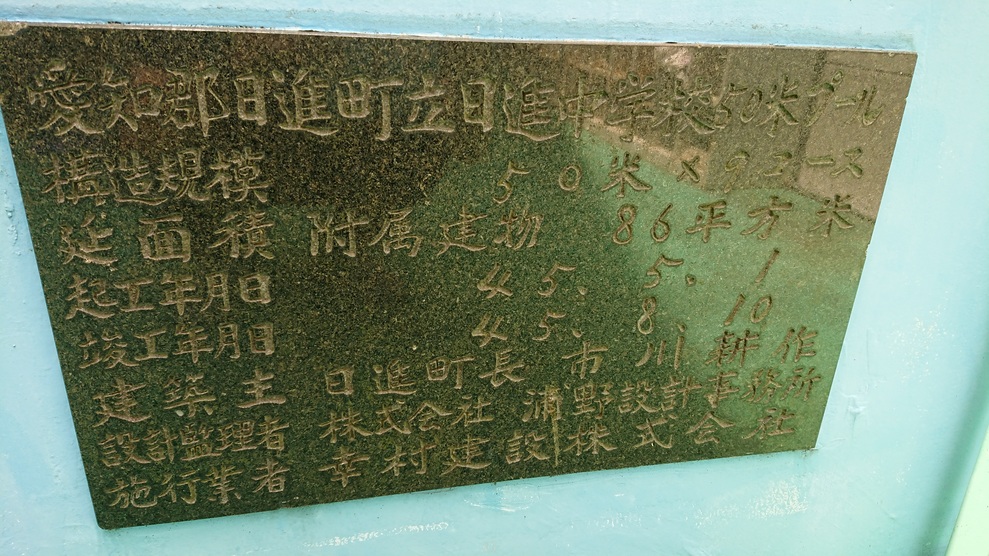 愛知郡日進町立日進中学校50米プール
構造規模 50米×9コース
延面積 附属建物 86平方米
起工年月日 45、5、1
竣工年月日 45、8、10
建築主 日進町長 市川 作
設計監理者 株式会社 浦野設計事務所
施行業者 幸村建設株式会社